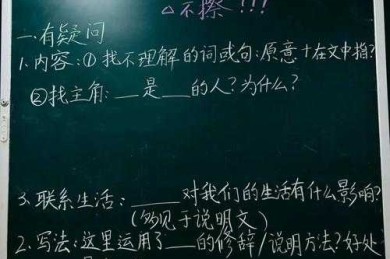 △不擦!!!
一.有疑问
1.内容:①找不理解的词或句:原意+在文中指?
②找主角:___是___的人?为什么?
3.联系生活:____对我们的生活有什么影响?
(多见于说明文)
2.写法:这里运用了___的修辞/说明方法?好处